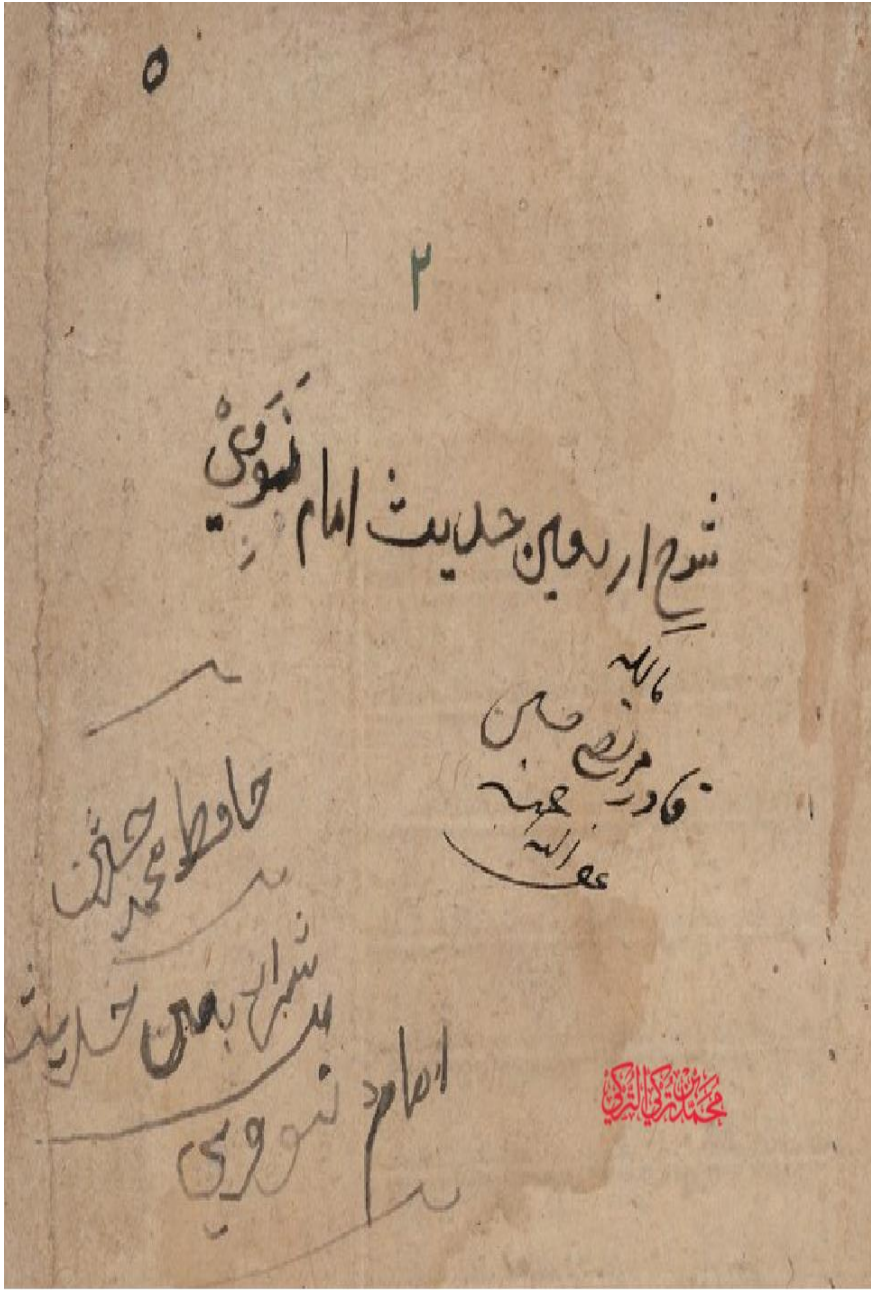 ٥
٢
شرح اربعين حديث امام نَووِيْ
مالكه
قادر مرتضى حسين
عفى الله عنه
حافظ محمد حسين
شرح اربعين حديث
امام نووي
محمد بن تركي التركي